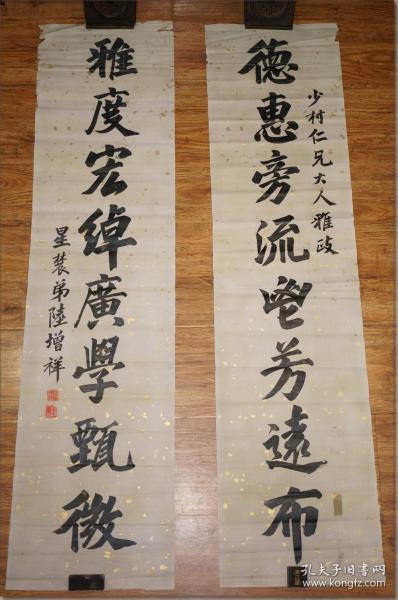 少村仁兄大人雅政
德惠旁流鬯芳遠布
雅度宏綽廣學甄微
星農弟陸增祥
孔夫子旧书网
www.kongfz.com